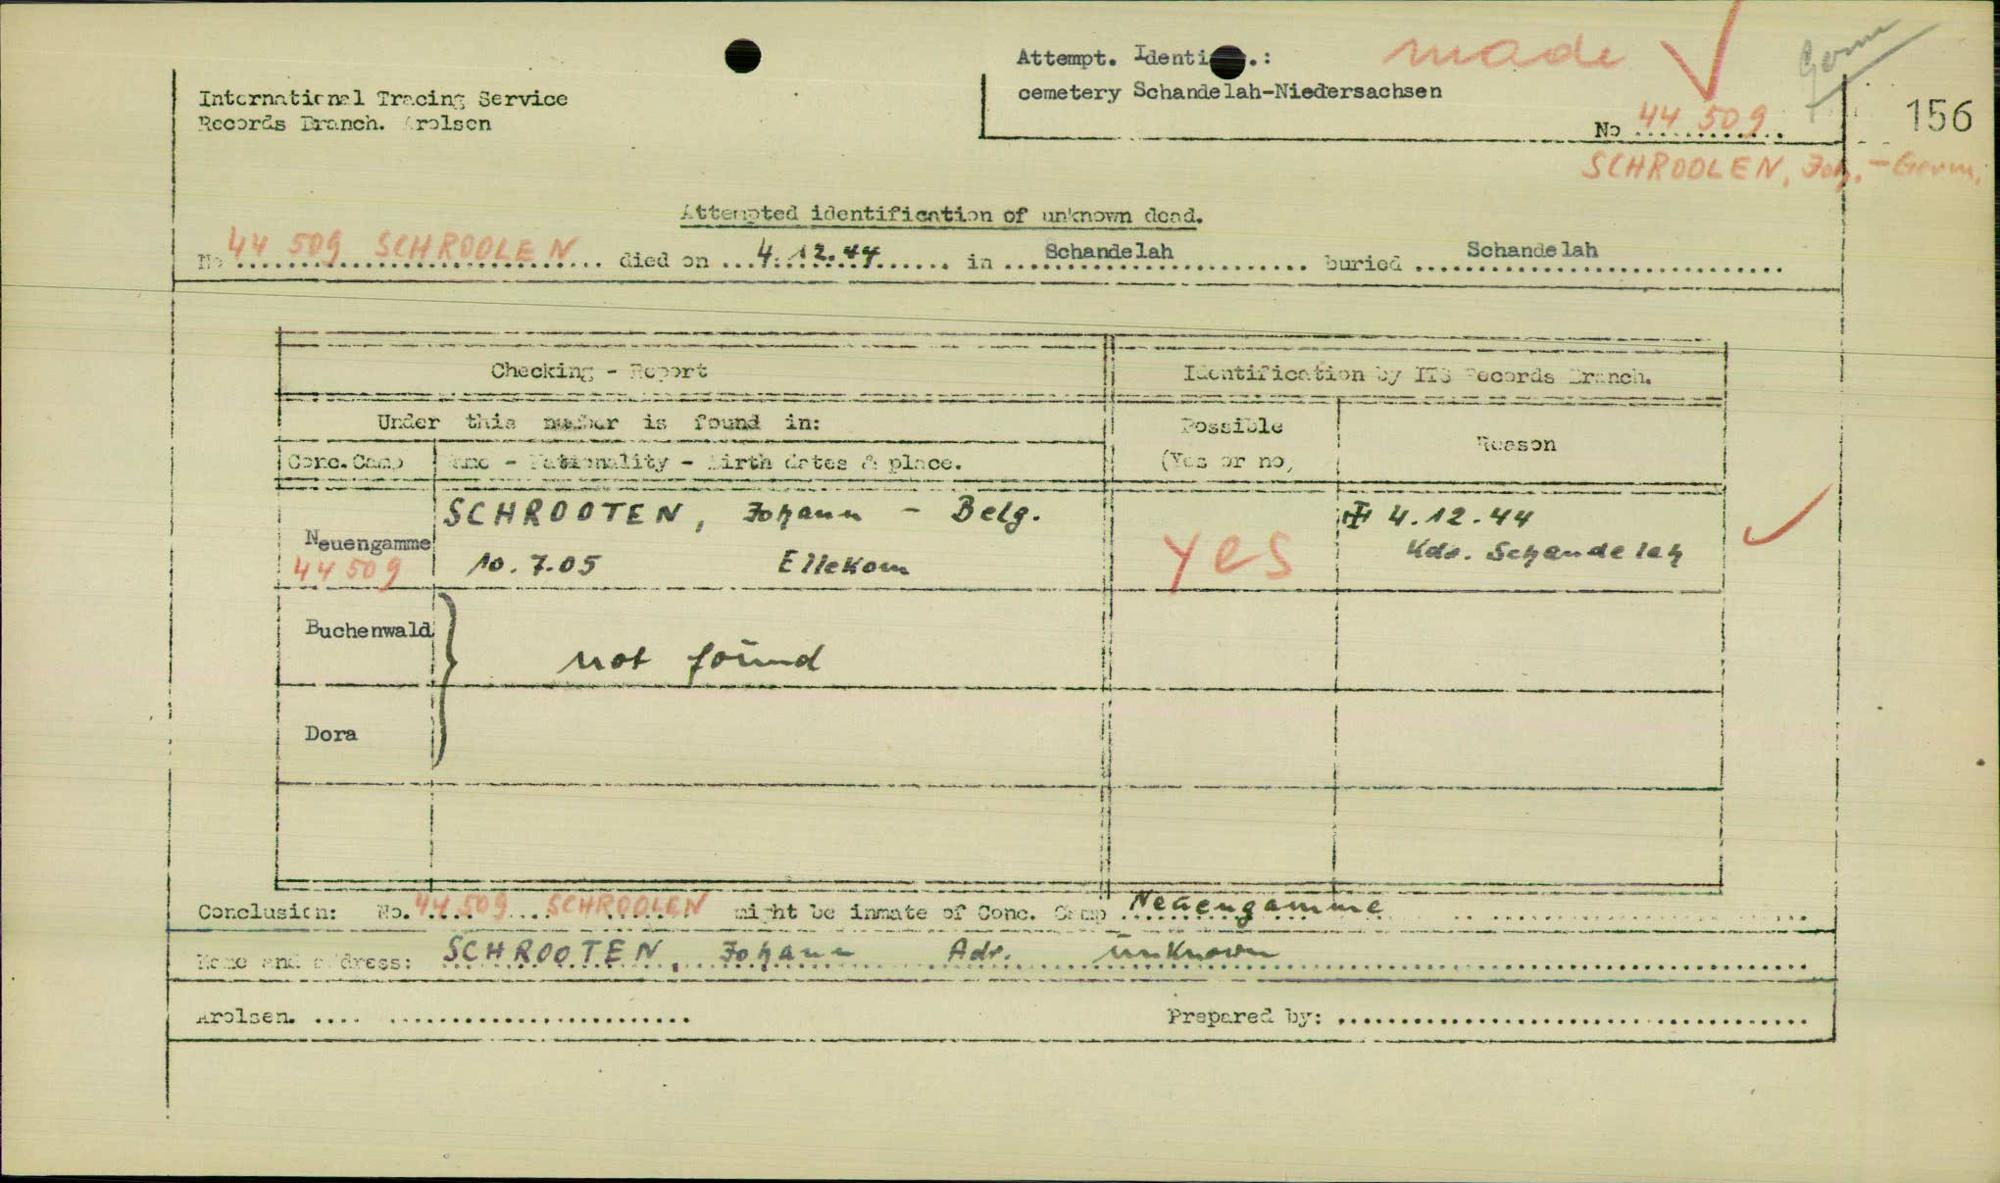 Attempt. Identi .: made ✓
cemetery Schandelah-Niedersachsen
International Tracing Service
Records Branch. Arolsen
No 44 509
156
SCHROOLEN, Joh. - Germ.
Attempted identification of unknown dead.
No 44 509 SCHROOLEN died on 4.12.44 in Schandelah buried Schandelah
Checking - Report
Identification by ITS Records Branch.
Under this number is found in:
Possible
(Yes or no,
Reason
Conc.Camp
Name - Nationality - Birth dates & place.
Neuengamme
44 509
SCHROOTEN, Johann - Belg.
10.7.05 Ellekom
yes
4.12.44
Kdo. Schandelah
✓
Buchenwald
not found
Dora
Conclusion: No. 44 509 SCHROOLEN might be inmate of Conc. Camp Neuengamme
Name and address: SCHROOTEN, Johann Adr. unknown
Arolsen. .... ........................
Prepared by: ....................................